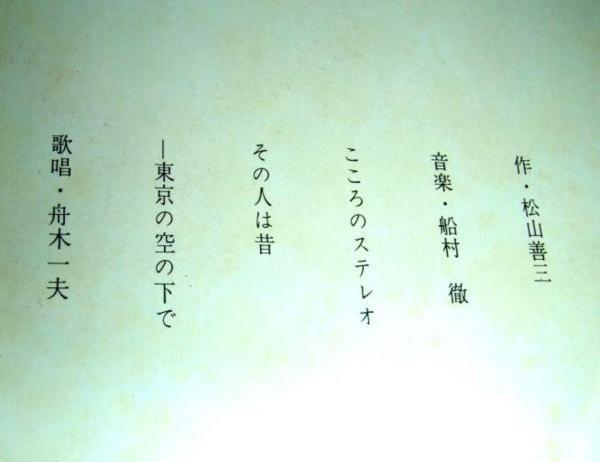 作・松山善三
音楽・船村 徹
こころのステレオ
その人は昔
―東京の空の下で
歌唱・舟木一夫